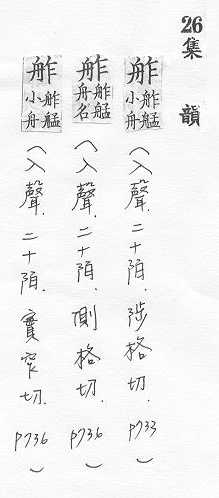 26集韻
舴 舴艋小舟(入聲.二十陌.陟格切.P733)
舴 舴艋舟名(入聲.二十陌.側格切.P736)
舴 舴艋小舟(入聲.二十陌.實窄切.P736)